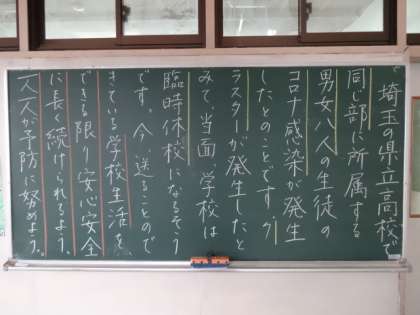 埼玉の県立高校で
同じ部に所属する
男女八人の生徒の
コロナ感染が発生
したとのことです。クラ
スターが発生したと
みて、当面、学校は
臨時休校になるそう
です。今、送ることので
きている学校生活を
できる限り安心安全
に長く続けられるよう、
一人一人が予防に努めよう。